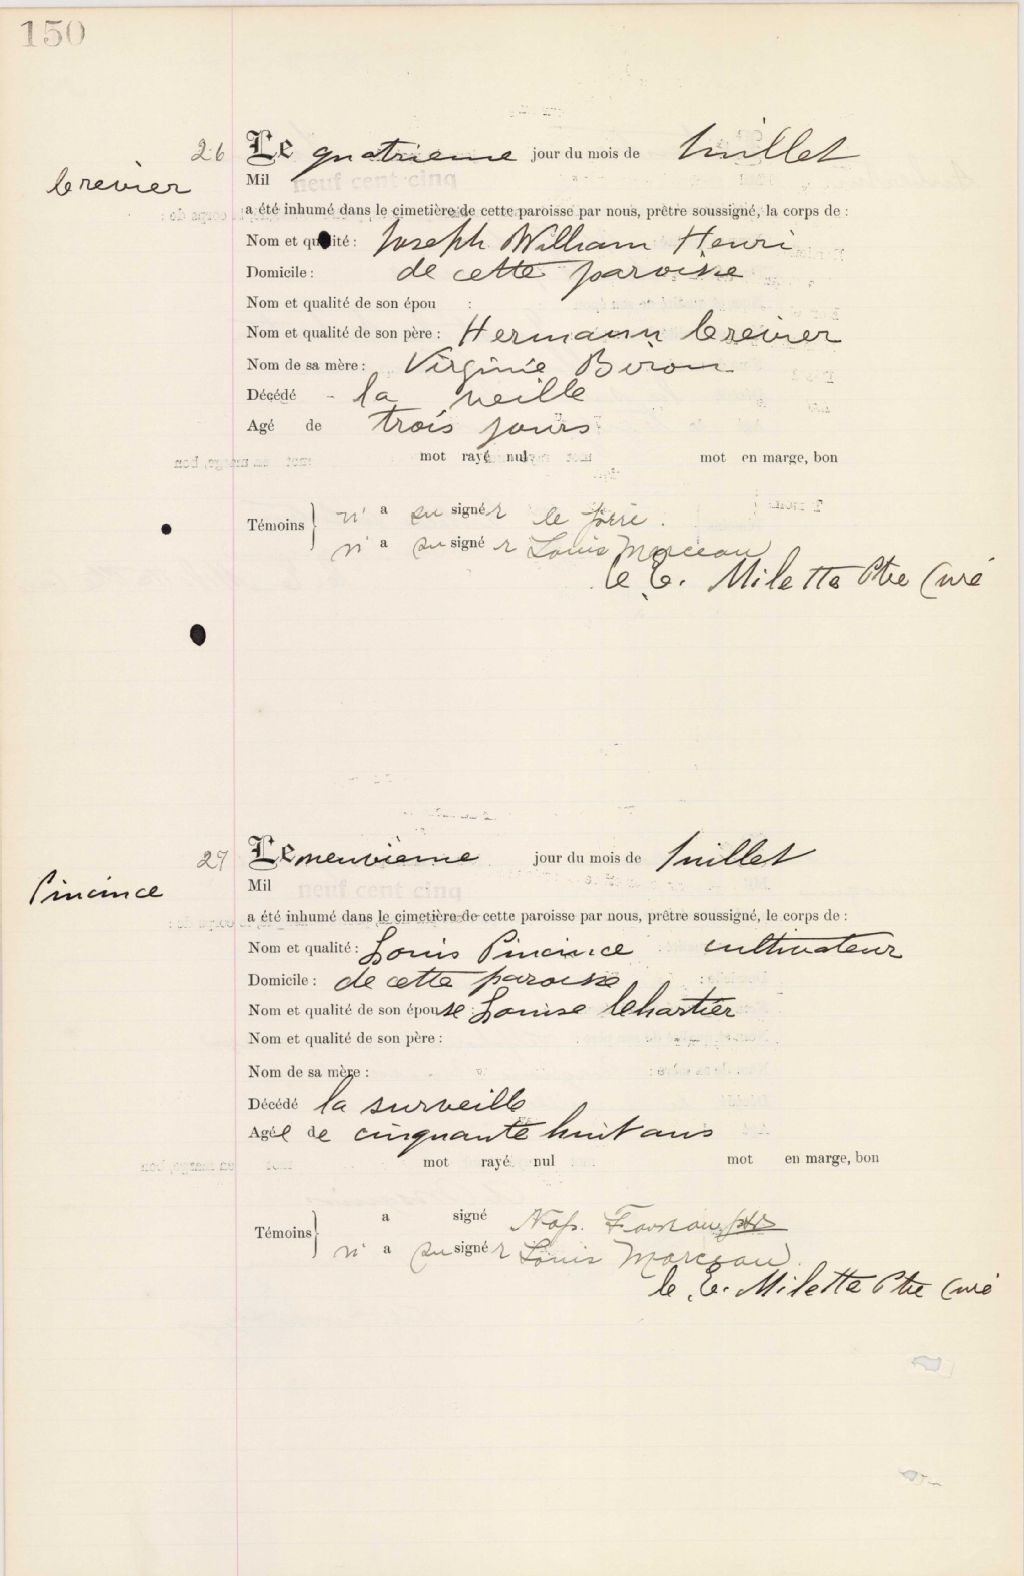 150
26 Le quatrieme jour du mois de Juillet
Crevier Mil neuf cent cinq
a été inhumé dans le cimetière de cette paroisse par nous, prêtre soussigné, la corps de :
Nom et qualité : Joseph William Henri
Domicile : de cette paroisse
Nom et qualité de son épou :
Nom et qualité de son père : Hermann Crevier
Nom de sa mère : Virginie Biron
Décédé la veille
Agé de trois jours
mot rayé nul mot en marge, bon
Témoins n' a su signé r le père.
n' a su signé r Louis Marceau
C. E. Milette Ptre Curé
27 Le neuvième jour du mois de Juillet
Pincince Mil neuf cent cinq
a été inhumé dans le cimetière de cette paroisse par nous, prêtre soussigné, le corps de :
Nom et qualité : Louis Pincince cultivateur
Domicile : de cette paroisse
Nom et qualité de son épouse : Louise Chartier
Nom et qualité de son père :
Nom de sa mère :
Décédé la surveille
Agé de cinquante huit ans
mot rayé nul mot en marge, bon
Témoins a signé Nap.
n' a su signé r Louis Marceau
C. E. Milette Ptre Curé